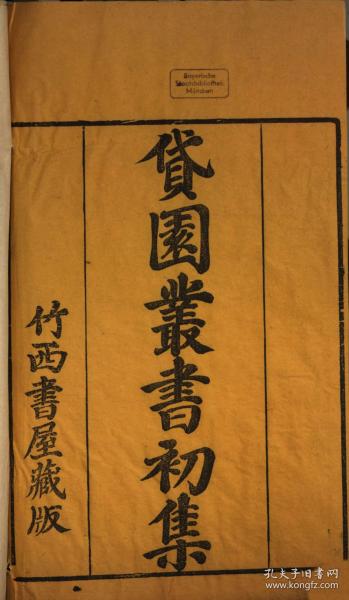 Bayerische
Staatsbibliothek
München
貸園叢書初集
竹西書屋藏版
孔夫子旧书网
www.kongfz.com